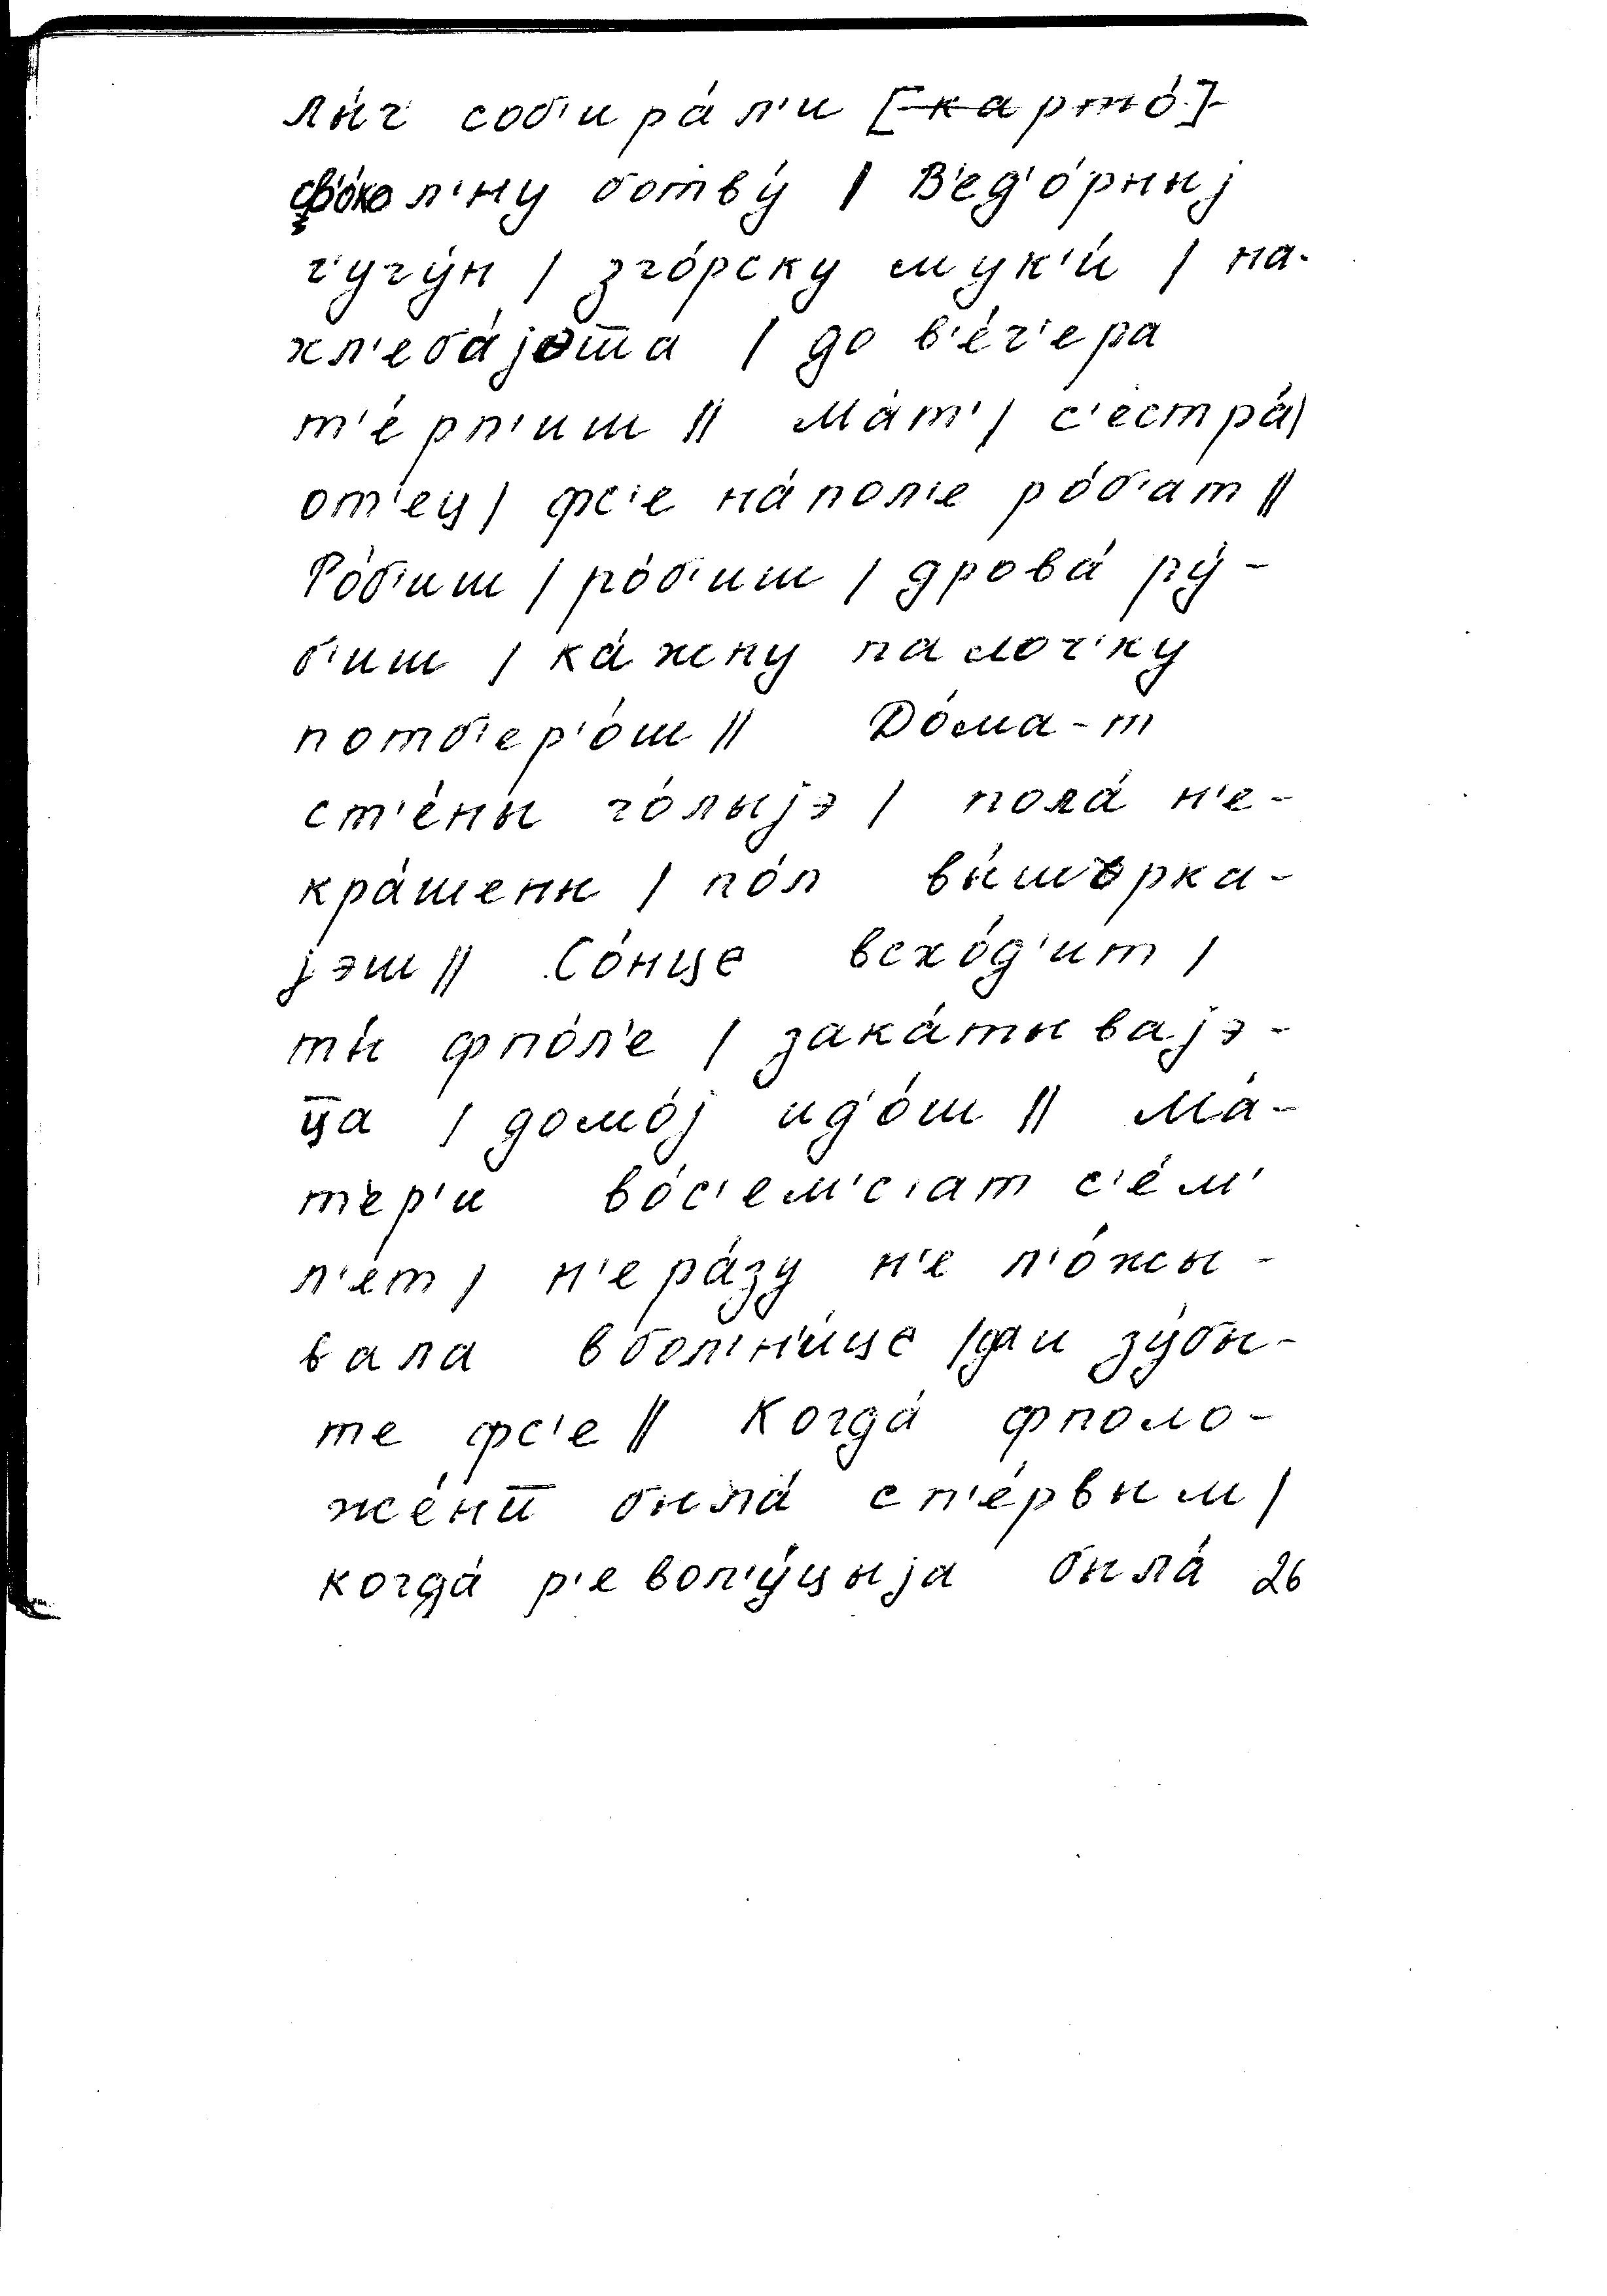 лы́ч соб'ира́л'и [карто́]
св'о́кол'ну ботву́ | В'ед'о́рныј
ч'угу́н | зго́рску мук'и́ | на-
хл'еба́јэт̅а | до в'е́ч'ера
т'е́рп'иш || Ма́т' | с'естра́ |
от'ец | фс'е на́пол'е ро́б'ат ||
Ро́б'иш | ро́б'иш | дрова́ ру́-
б'иш | ка́жну палоч'ку
потб'ер'о́ш || До́ма-т
ст'е́ны го́лыјэ | пола́ н'е-
кра́шены | по́л вы́шорка-
јэш || Со́нце всхо́д'ит |
ты́ фпо́л'е | зака́тывајэ-
ц̅а | домо́ј ид'о́ш || Ма́-
т'ер'и во́с'ем'с'ат с'е́м'
л'ет | н'е ра́зу н'е л'о́жы-
вала вбол'н'и́це | да и зу́бы-
те фс'е || Когда́ фполо-
же́нӣ была́ сп'е́рвым |
когда́ р'евол'у́цыја была́ 26